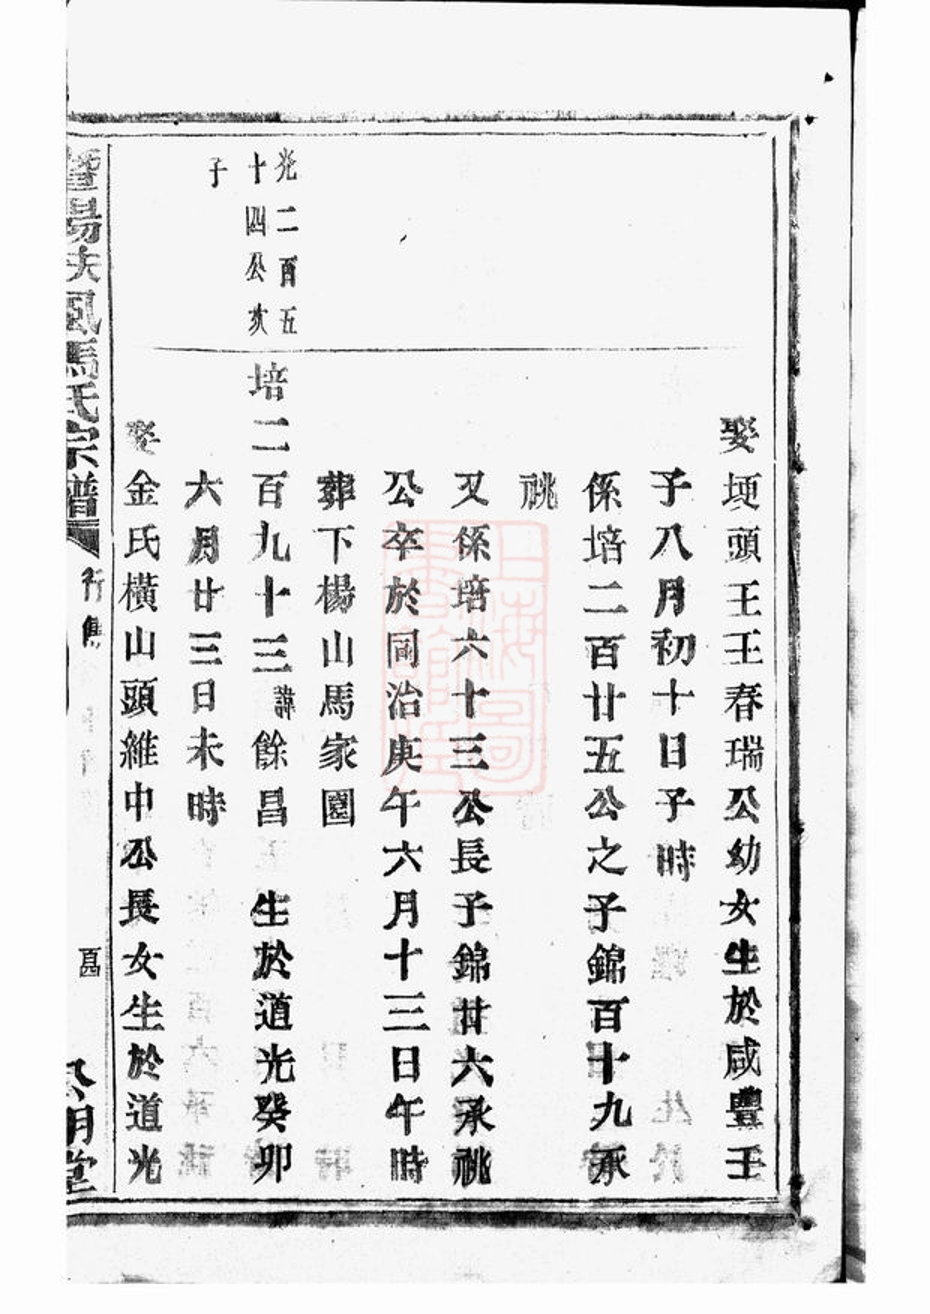 娶埂頭王王春瑞公幼女生於咸豐壬
子八月初十日子時
係培二百廿五公之子錦百十九承
祧
又係培六十三公長子錦廿六承祧
公卒於同治庚午六月十三日午時
葬下楊山馬家園
光二百五
十四公亥
子
培二百九十三諱餘昌 生於道光癸卯
六月廿三日未時
娶金氏橫山頭維中公長女生於道光
暨陽扶風馬氏宗譜 行雋 明堂
上海圖書館藏